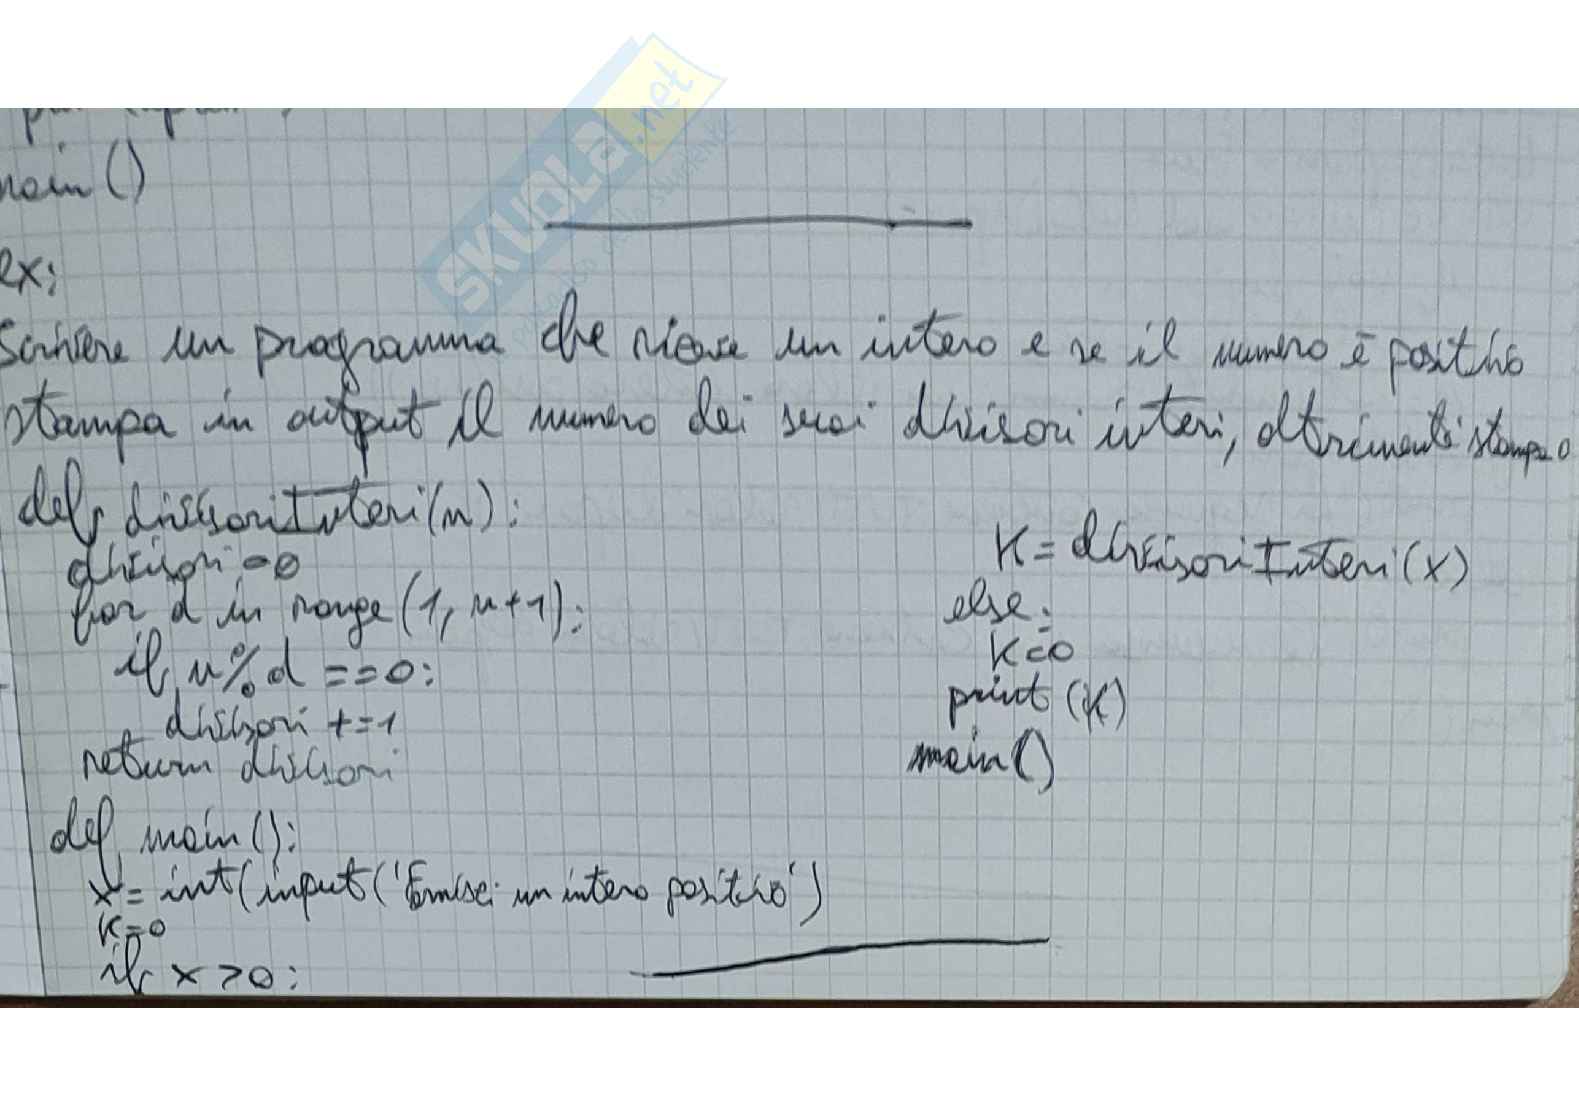 main ()
ex:
Scrivere un programma che riceve un intero e se il numero è positivo
stampa in output il numero dei suoi divisori interi, altrimenti stampa 0
def divisoriInteri(n):
divisori = 0
for d in range (1, n+1):
if n%d ==0:
divisori +=1
return divisori
def main():
x = int(input('Inserisci un intero positivo')
K=0
if x >0:
K= divisoriInteri(x)
else:
K=0
print (K)
main()
SKUOLA.net